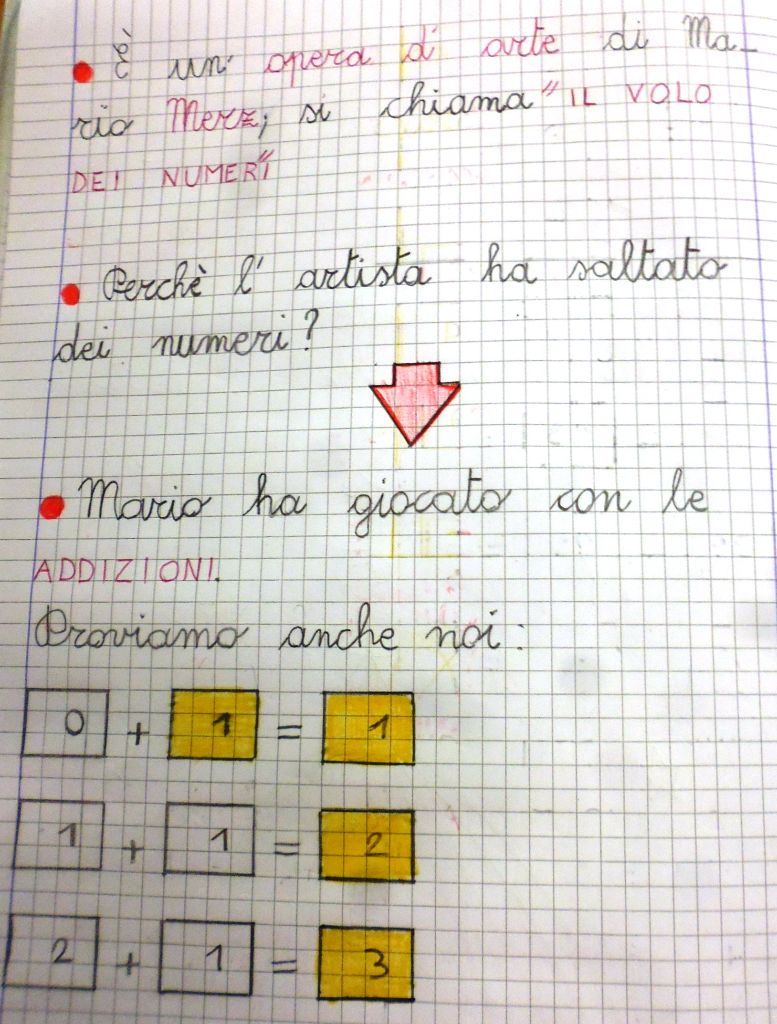 È un' opera d' arte di Ma-
rio Merz, si chiama "IL VOLO
DEI NUMERI"
Perchè l' artista ha saltato
dei numeri?
Mario ha giocato con le
ADDIZIONI.
Proviamo anche noi:
0 + 1 = 1
1 + 1 = 2
2 + 1 = 3